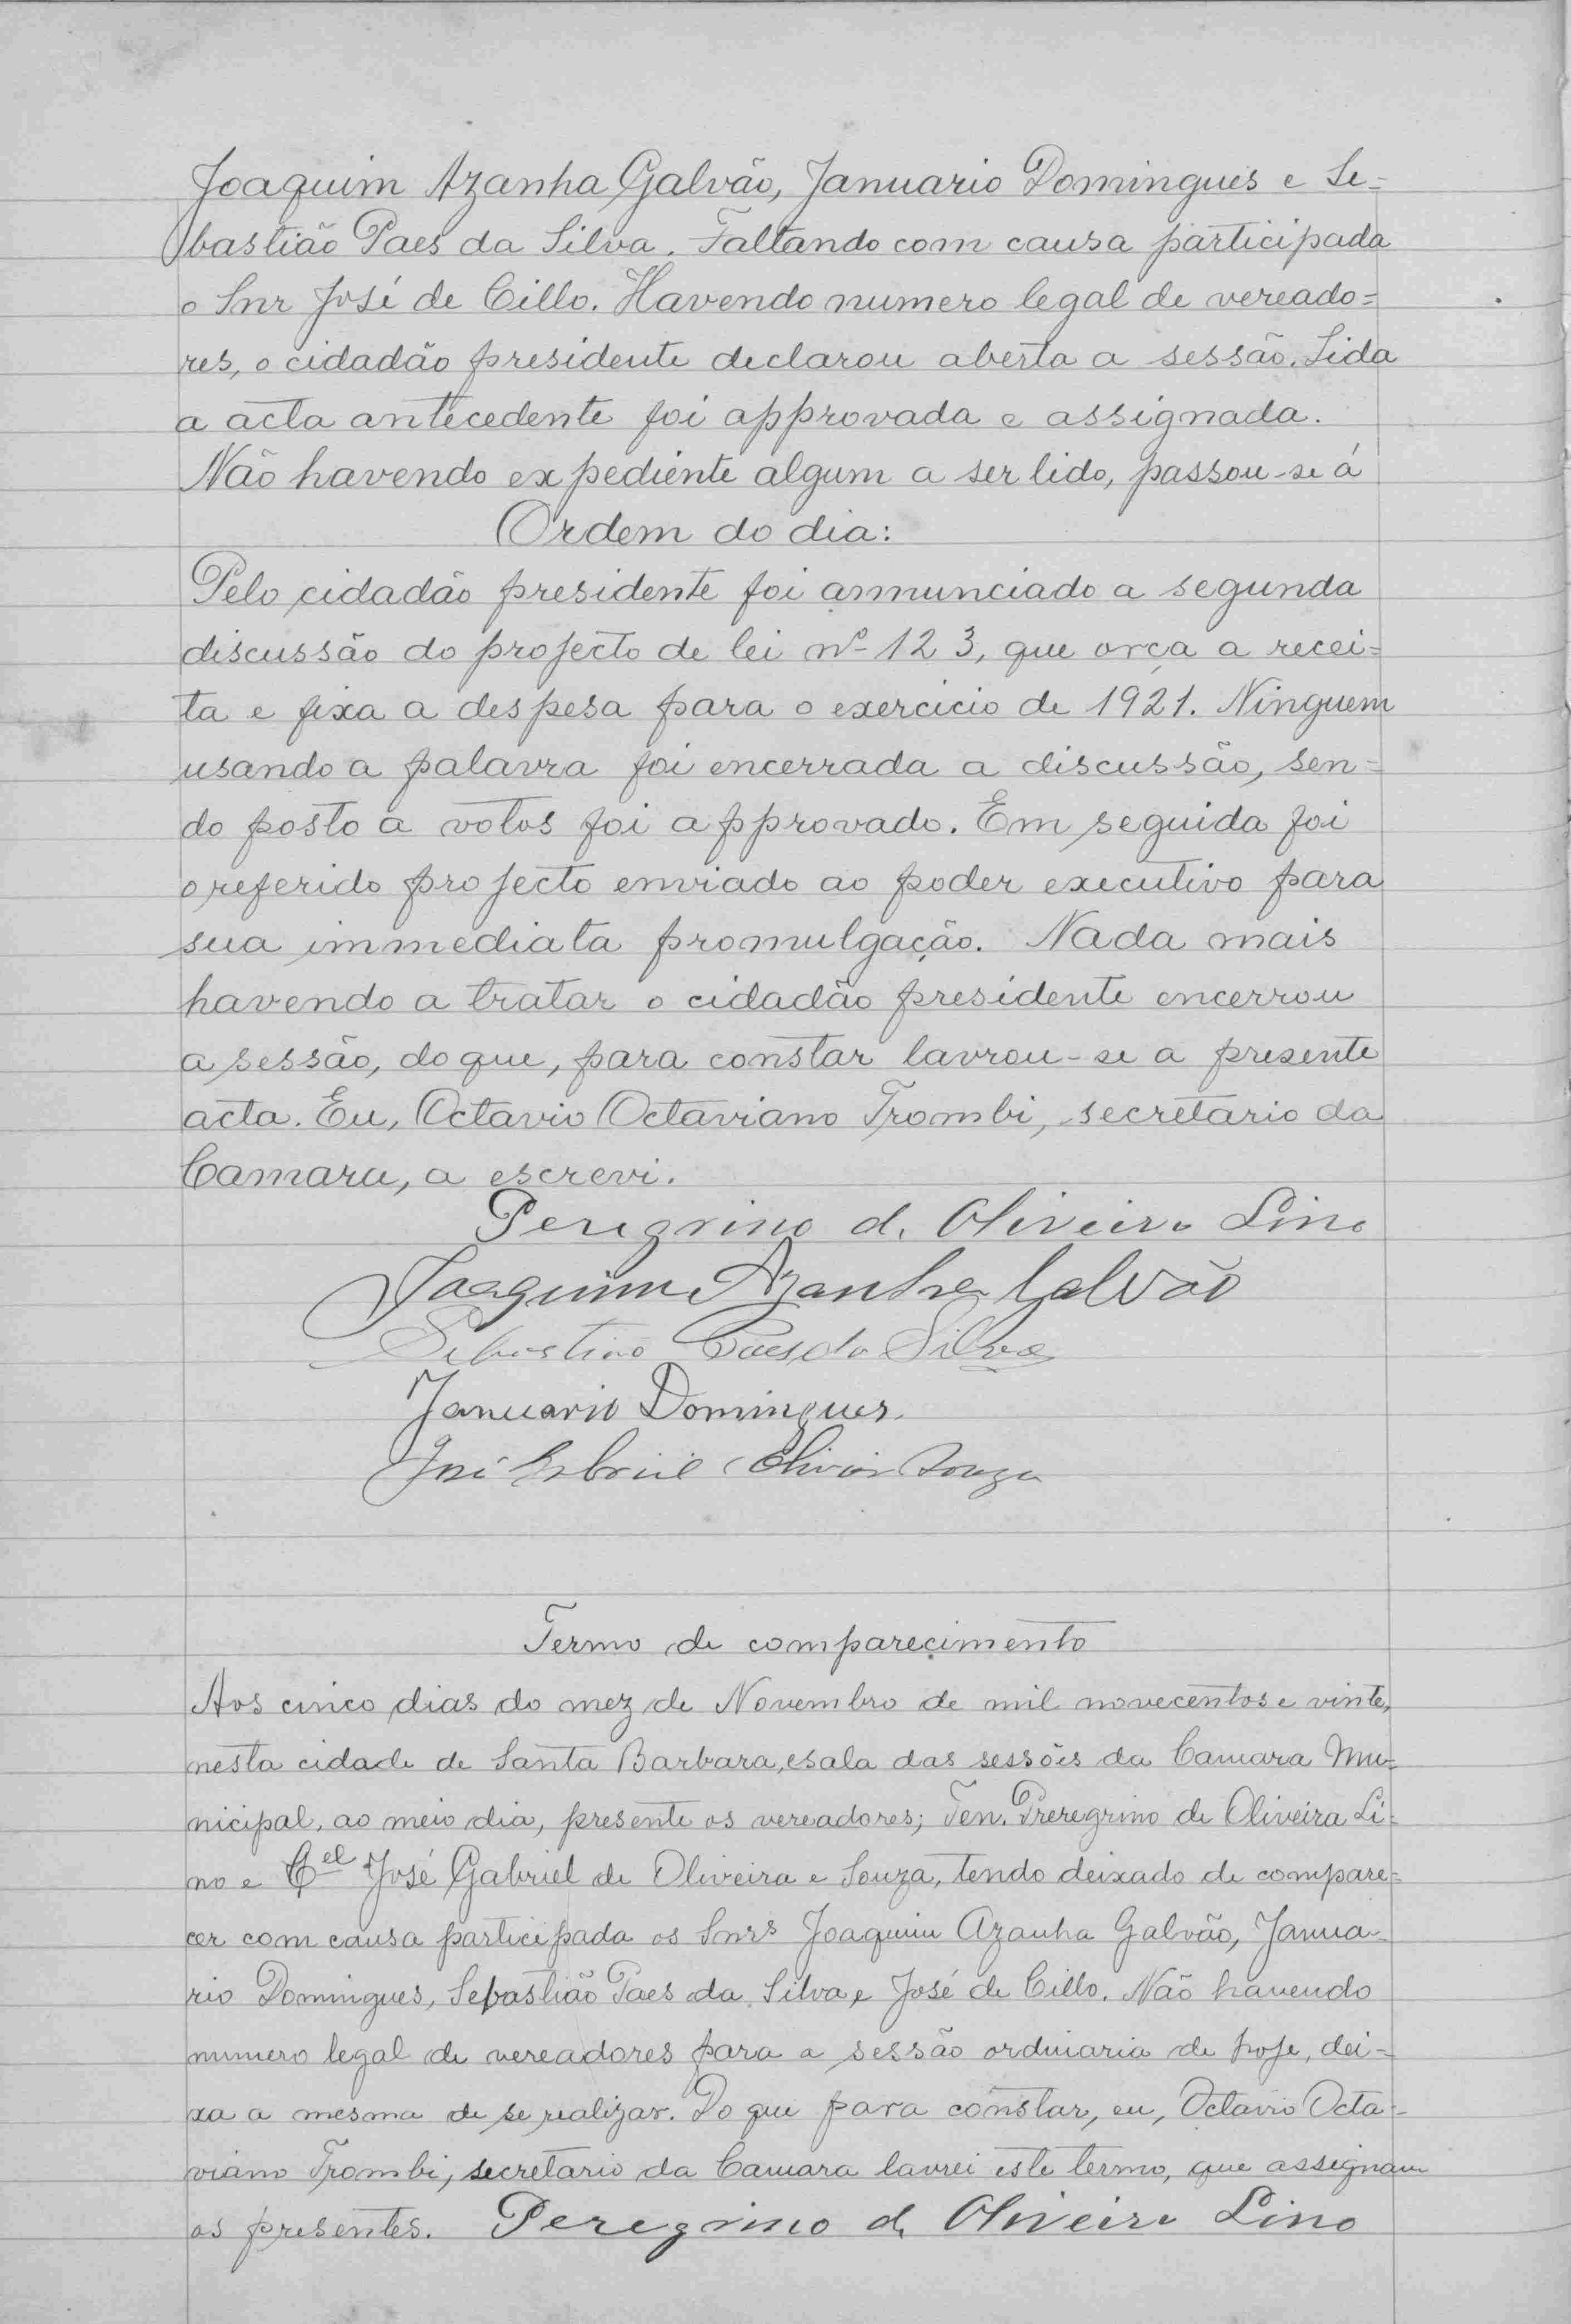 Joaquim Azanha Galvão, Januario Domingues e Se=
bastião Paes da Silva. Faltando com causa participada
o Snr José de Cillo. Havendo numero legal de vereado=
res, o cidadão presidente declarou aberta a sessão. Lida
a acta antecedente foi approvada e assignada.
Não havendo expediente algum a ser lido, passou-se á
Ordem do dia:
Pelo cidadão presidente foi annunciado a segunda
discussão do projecto de lei nº 123, que orça a recei=
ta e fixa a despesa para o exercicio de 1921. Ninguem
usando a palavra foi encerrada a discussão, sen=
do posto a votos foi approvado. Em seguida foi
o referido projecto enviado ao poder executivo para
sua immediata promulgação. Nada mais
havendo a tratar o cidadão presidente encerrou
a sessão, do que, para constar lavrou-se a presente
acta. Eu, Octavio Octaviano Trombi, secretario da
Camara, a escrevi.
Peregrino d. Oliveira Lino
Joaquim Azanha Galvão
Sebastião Paes da Silva
Januario Domingues.
José Gabriel Oliveira Souza
Termo de comparecimento
Aos cinco dias do mez de Novembro de mil novecentos e vinte,
nesta cidade de Santa Barbara, e sala das sessões da Camara Mu=
nicipal, ao meio dia, presente os vereadores; Ten. Preregrino de Oliveira Li=
no e Cel José Gabriel de Oliveira e Souza, tendo deixado de compare=
cer com causa participada os Snrs Joaquim Azanha Galvão, Janua-
rio Domingues, Sebastião Paes da Silva, e José de Cillo. Não havendo
numero legal de vereadores para a sessão ordinaria de hoje, dei=
xa a mesma de se realizar. Do que para constar, eu, Octavio Octa-
viano Trombi, secretario da Camara lavrei este termo, que assignam
os presentes. Peregrino d. Oliveira Lino